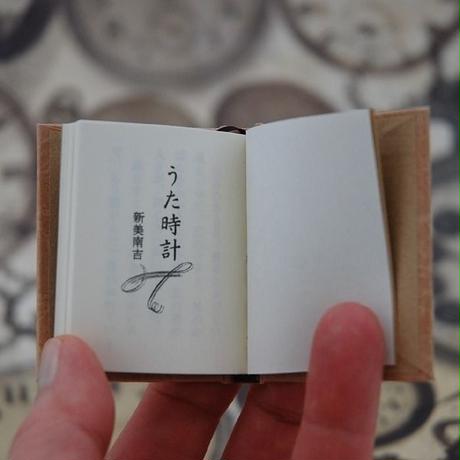 うた時計
新美南吉